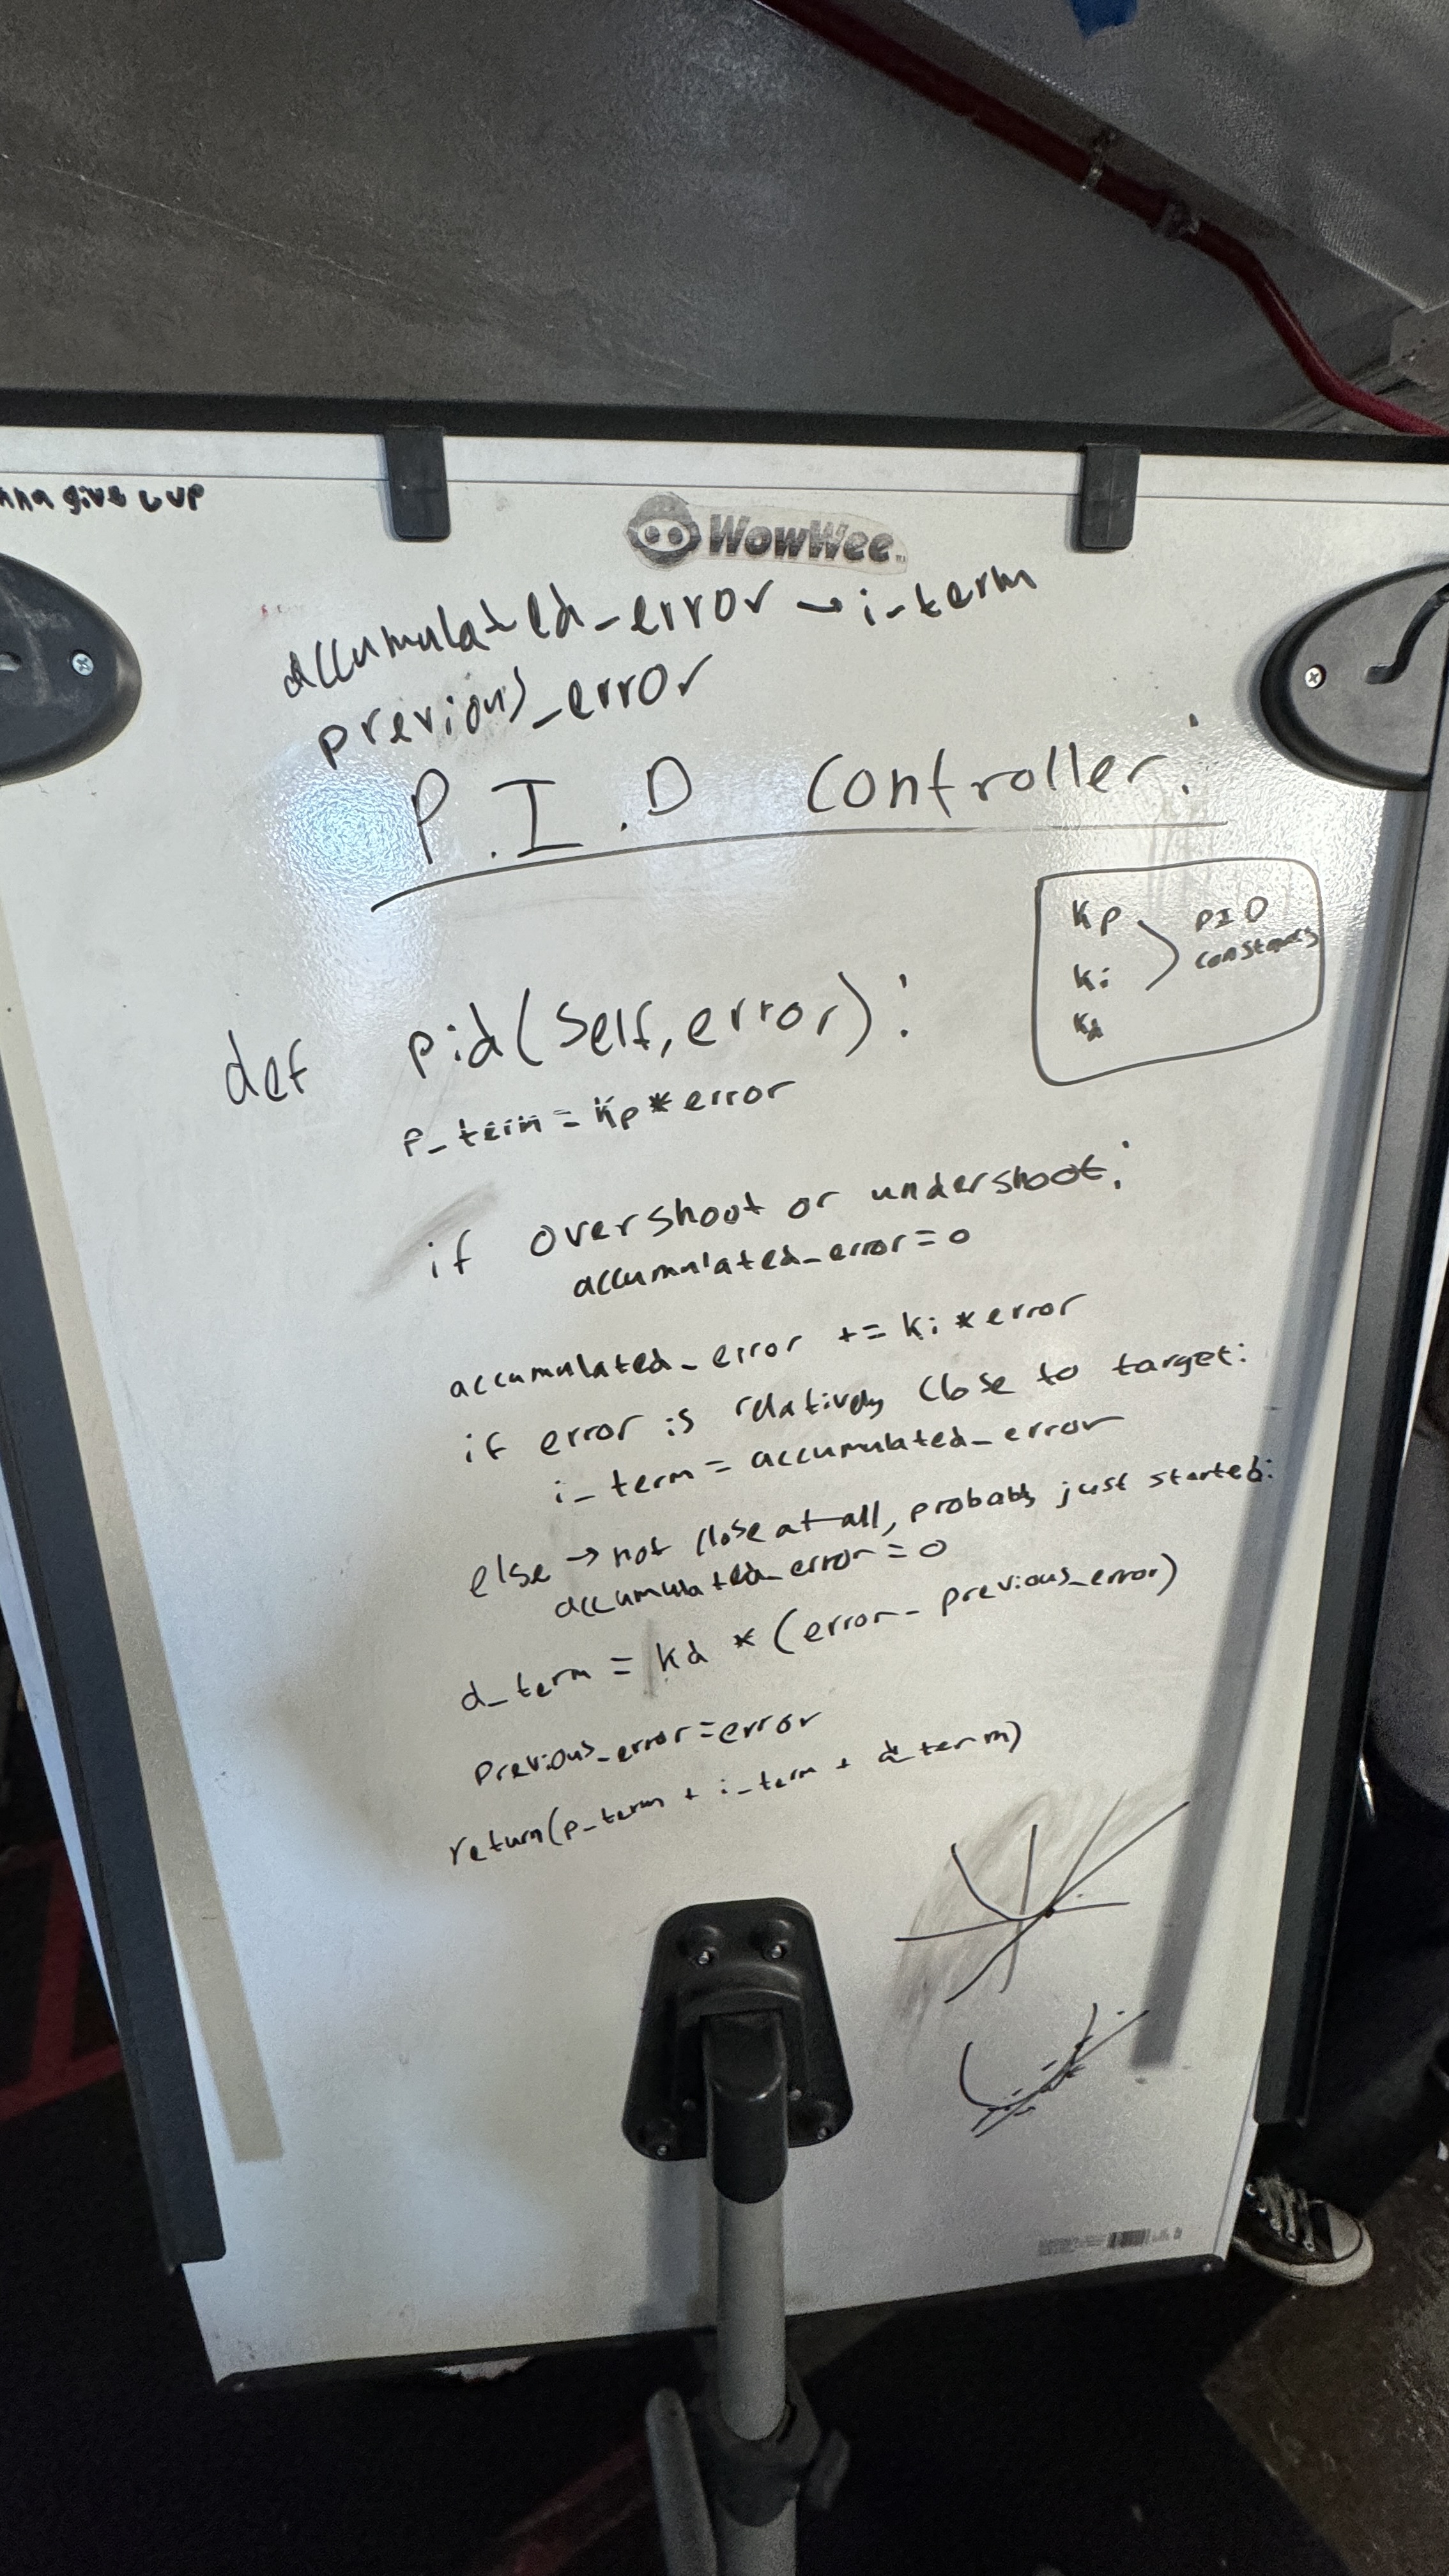 give u up
WowWee
accumulated_error → i_term
previous_error
P.I.D Controller:
Kp
Ki
Kd
PID
constants
def pid(self, error):
P_term = Kp * error
if overshoot or undershoot:
accumulated_error = 0
accumulated_error += Ki * error
if error is relatively close to target:
i_term = accumulated_error
else → not close at all, probably just started:
accumulated_error = 0
d_term = Kd * (error - previous_error)
previous_error = error
return(p_term + i_term + d_term)